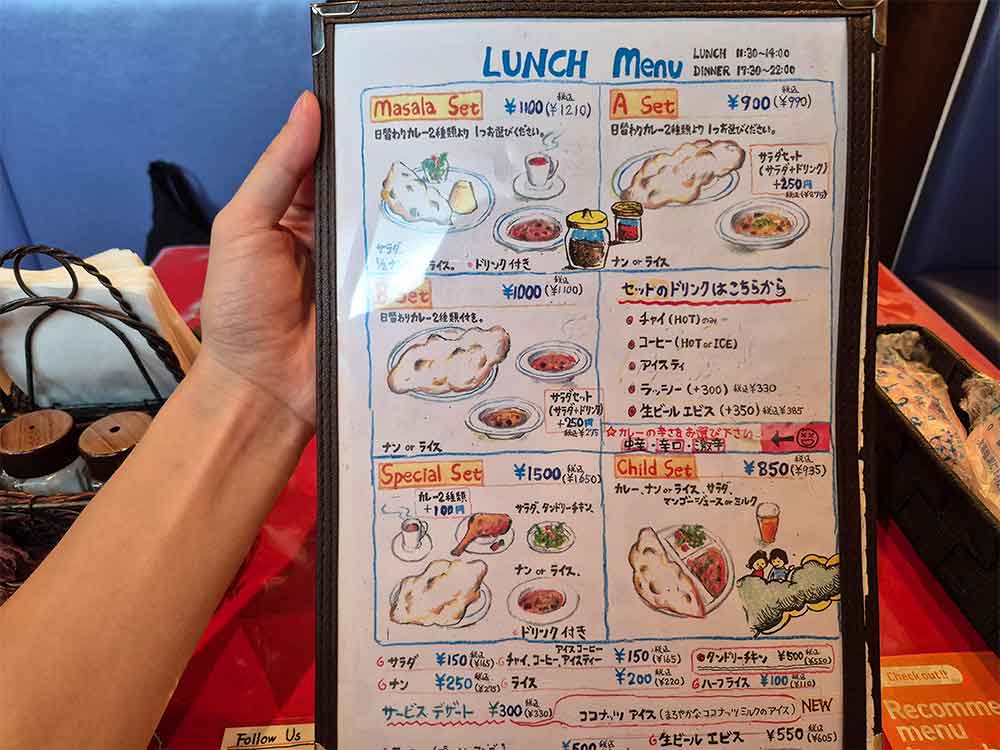 LUNCH Menu
LUNCH 11:30〜14:00
DINNER 17:30〜22:00
Masala Set ¥1100 税込(¥1210)
日替わりカレー2種類より 1つお選びください。
サラダ
ライス。 ・ドリンク付き
A Set ¥900 税込(¥990)
日替わりカレー2種類より 1つお選びください。
サラダセット
(サラダ+ドリンク)
+250円
税込(¥275)
ナン or ライス
B Set ¥1000 税込(¥1100)
日替わりカレー2種類付き。
サラダセット
(サラダ+ドリンク)
+250円
税込¥275
ナン or ライス
セットのドリンクはこちらから
チャイ (HOT)のみ
コーヒー (HOT or ICE)
アイスティ
ラッシー (+300) 税込¥330
生ビール エビス (+350) 税込¥385
☆カレーの辛さをお選び下さい
中辛・辛口・激辛
Special Set ¥1500 税込(¥1650)
カレー2種類
+100円
サラダ、タンドリーチキン、
ナン or ライス、
・ドリンク付き
Child Set ¥850 税込(¥935)
カレー、ナン or ライス、サラダ、
マンゴージュース or ミルク
サラダ ¥150 税込(¥165)
チャイ、コーヒー、アイスティー アイスコーヒー ¥150 税込(¥165)
タンドリーチキン ¥500 税込(¥550)
ナン ¥250 税込(¥275)
ライス ¥200 税込(¥220)
ハーフライス ¥100 税込(¥110)
サービス デザート ¥300 税込(¥330)
ココナッツ アイス (まろやかなココナッツミルクのアイス) NEW
¥500 税込
生ビール エビス ¥550 税込(¥605)
Follow Us
Check out!!
Recomme
menu